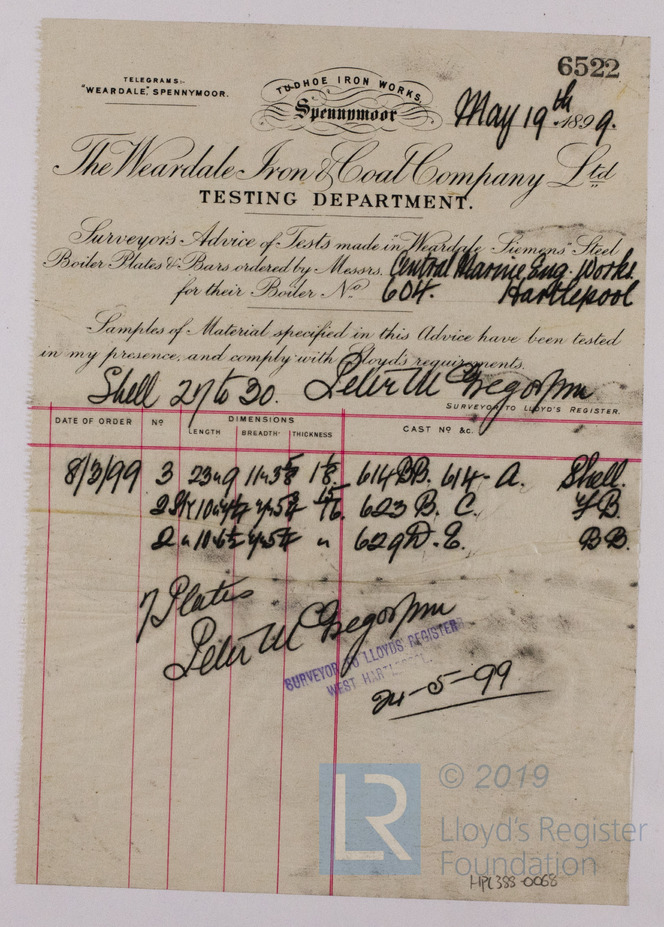 6522
TELEGRAMS:-
"WEARDALE," SPENNYMOOR.
TUDHOE IRON WORKS,
Spennymoor
May 19th 1899.
The Weardale Iron & Coal Company Ltd
TESTING DEPARTMENT.
Surveyor's Advice of Tests made in Weardale Siemens' Steel
Boiler Plates & Bars ordered by Messrs. Central Marine Eng. Works
for their Boiler No. 604. Hartlepool
Samples of Material specified in this Advice have been tested
in my presence, and comply with Lloyd's requirements.
Shell 27 to 30. Peter McGregor
SURVEYOR TO LLOYD'S REGISTER.
DATE OF ORDER No DIMENSIONS CAST No &c.
LENGTH BREADTH THICKNESS
8/3/99 3 1 1/8 614 BB. 614 - A. Shell.
2 15/16 623 B. C. F B.
2 " " 629 D. E. B B.
7 Plates
Peter McGregor
SURVEYOR TO LLOYDS' REGISTER
WEST HARTLEPOOL.
24-5-99
LR
© 2019
Lloyd's Register
Foundation
HPL388-0068